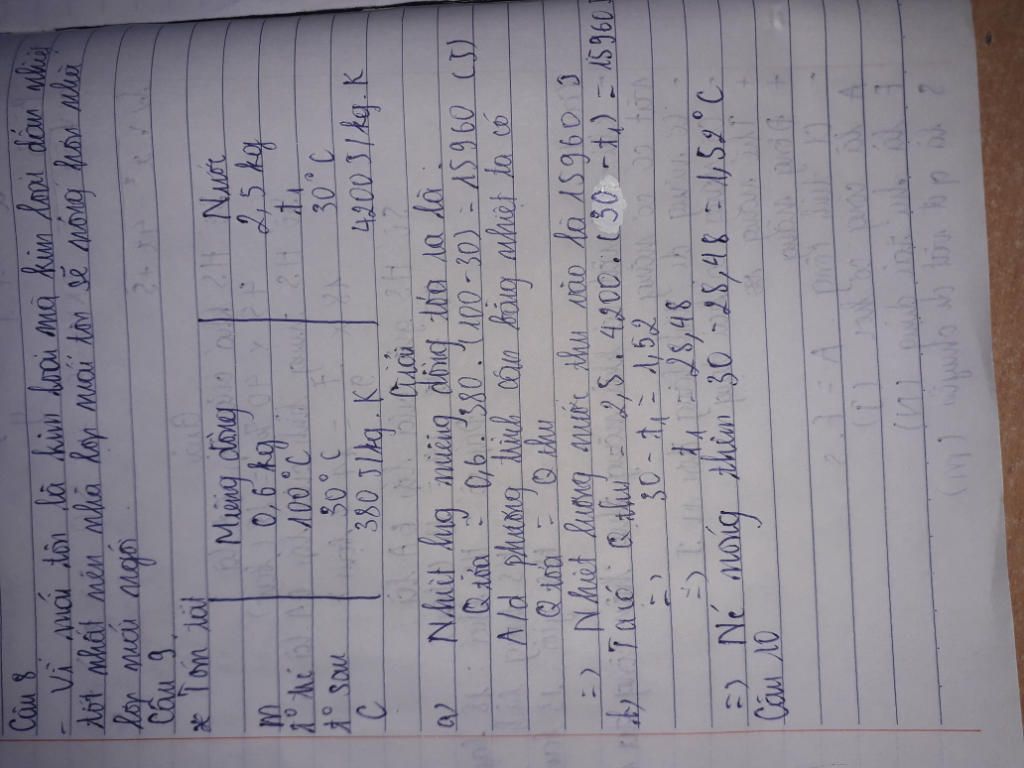 Câu 8
- Vì mái tôn là kim loại mà kim loại dẫn nhiệt
tốt nhất nên nhà lợp mái tôn sẽ nóng hơn nhà
lợp mái ngói
Câu 9
* Tóm tắt
Miếng đồng Nước
m 0,6 kg 2,5 kg
t° bđ 100°C t1
t° sau 30°C 30°C
C 380 J/kg.K 4200 J/kg.K
Giải
a) Nhiệt lượng miếng đồng tỏa ra là:
Q tỏa = 0,6.380.(100-30) = 15960 (J)
A/d phương trình cân bằng nhiệt ta có
Q tỏa = Q thu
=) Nhiệt lượng nước thu vào là 15960 J
b) Ta có Q thu = 2,5.4200.(30-t1) = 15960 J
=) 30 - t1 = 1,52
=) t1 = 28,48
=) Nó nóng thêm 30 - 28,48 = 1,52°C
Câu 10